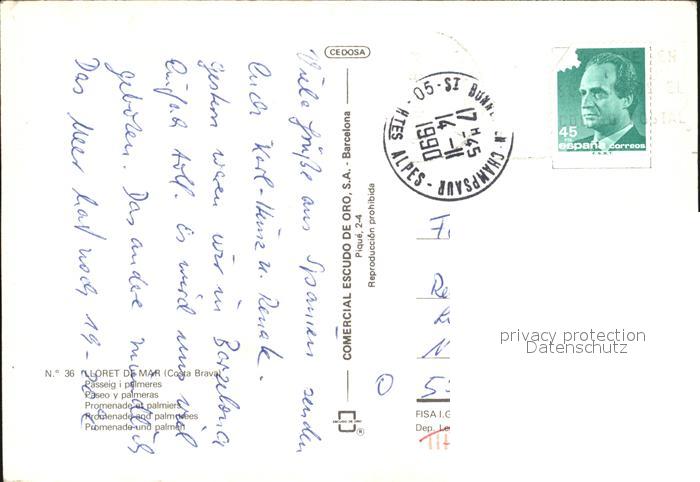 Viele Grüße aus Spanien senden
Euch Karl-Heinz u. Renate.
gestern waren wir in Barzelona
Einfach toll. Es wird uns viel
geboten. Das andere mündlich
Das Meer hat noch 19-20
CEDOSA
COMERCIAL ESCUDO DE ORO, S.A. - Barcelona
Piqué, 2-4
Reproducción prohibida
ESCUDO DE ORO
®
N.º 36 LLORET DE MAR (Costa Brava)
Passeig i palmeres
Paseo y palmeras
Promenade et palmiers
Promenade and palmtrees
Promenade und palmen
05 - ST BONN EN CHAMPSAUR - HTES ALPES
17 H 45
14 - 11
1990
45
españa correos
F.N.M.T.
FISA I.G
Dep. Le
privacy protection
Datenschutz